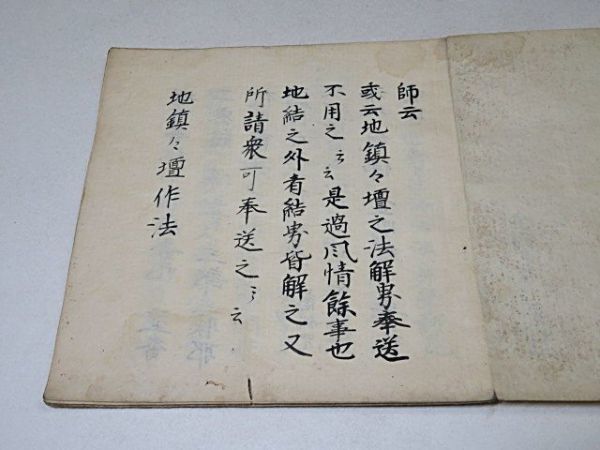 師云
或云地鎮々壇之法解界奉送
不用之云々是過風情餘事也
地結之外者結界皆解之又
所請衆可奉送之云々
地鎮々壇作法